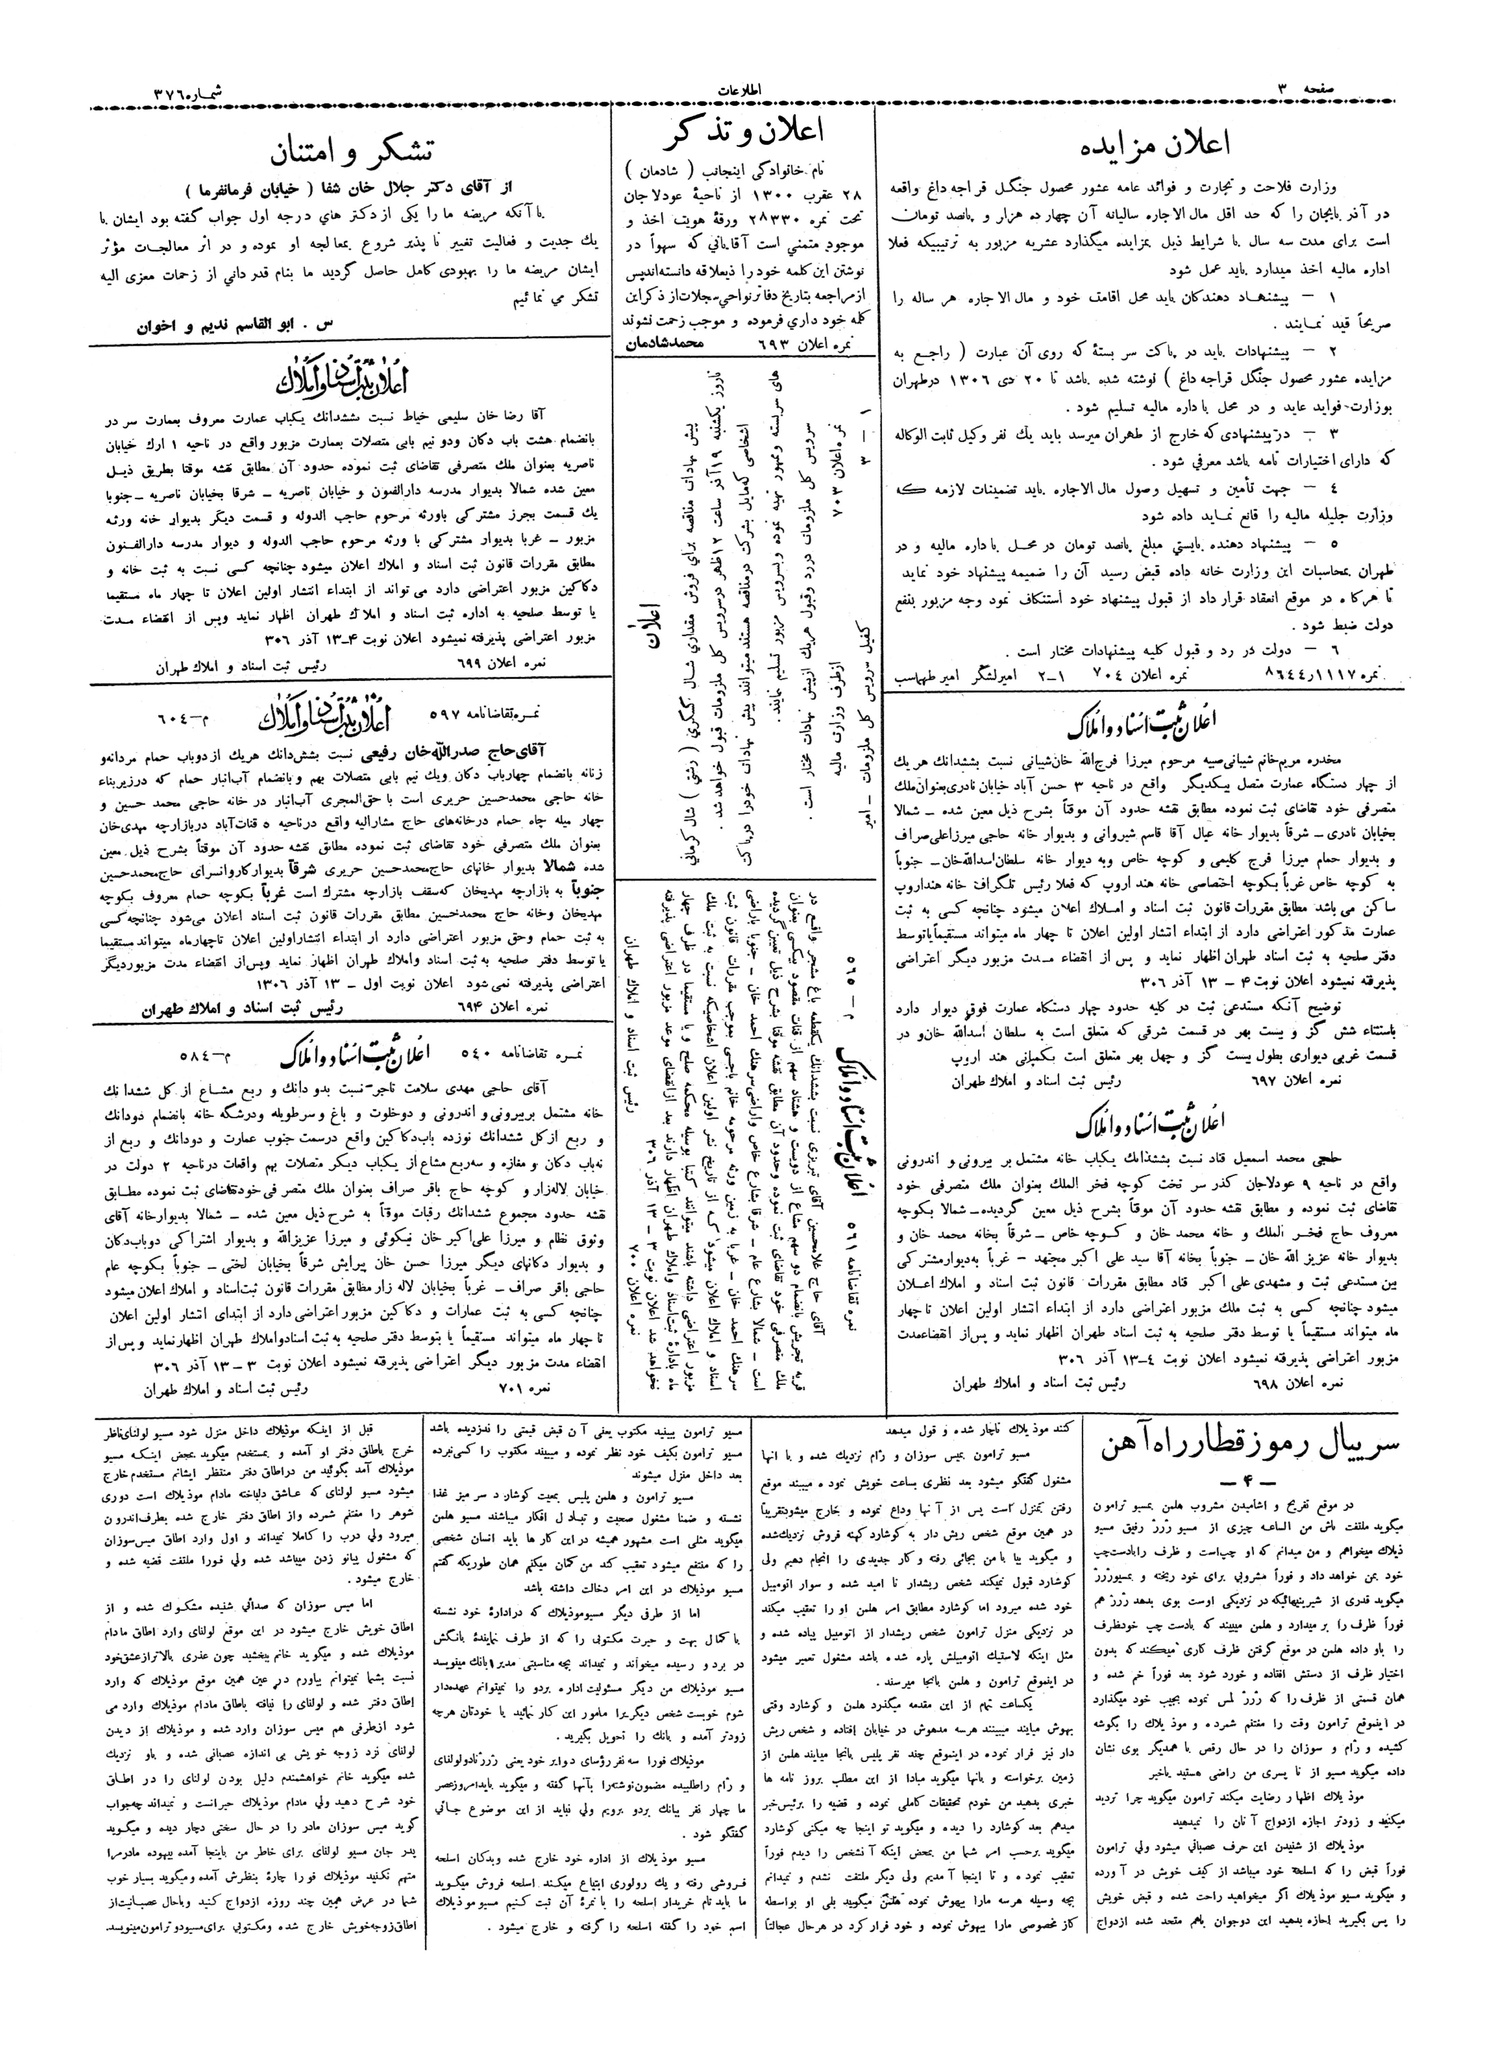 صفحه ۳
اطلاعات
شماره ۳۷۶
اعلان مزایده
وزارت فلاحت و تجارت و فوائد عامه عشور محصول جنگل قراجه داغ واقعه
در آذربایجان را که حد اقل مال الاجاره سالیانه آن چهارده هزار و پانصد تومان
است برای مدت سه سال با شرایط ذیل بمزایده میگذارد عشریه مزبور به ترتیبیکه فعلا
اداره مالیه اخذ میدارد باید عمل شود
۱ – پیشنهاد دهندگان باید محل اقامت خود و مال الاجاره هر ساله را
صریحاً قید نمایند .
۲ – پیشنهادات باید در پاکت سر بستهٔ که روی آن عبارت ( راجع به
مزایده عشور محصول جنگل قراجه داغ ) نوشته شده باشد تا ۲۰ دی ۱۳۰۶ درطهران
بوزارت-فواید عاید و در محل باداره مالیه تسلیم شود .
۳ – درپیشنهادی که خارج از طهران میرسد باید یك نفر وکیل ثابت الوکاله
که دارای اختیارات تامه باشد معرفی شود .
۴ – جهت تأمین و تسهیل وصول مال الاجاره باید تضمینات لازمه که
وزارت جلیله مالیه را قانع نماید داده شود
۵ – پیشنهاد دهنده بایستی مبلغ پانصد تومان در محل باداره مالیه و در
طهران بمحاسبات این وزارت خانه داده قبض رسید آن را ضمیمه پیشنهاد خود نماید
تا هرکاه در موقع انعقاد قرار داد از قبول پیشنهاد خود استنکاف نمود وجه مزبور بنفع
دولت ضبط شود .
۶ – دولت در رد و قبول کلیه پیشنهادات مختار است .
نمره ۸۶۴۴٫۱۱۱۷ نمره اعلان ۷۰۴ ۱-۲ امیرلشگر امیر طهماسب
اعلان ثبت اسناد و املاک
مخدره مریم خانم شیبانی صبیه مرحوم میرزا فرج‌الله خان‌شیبانی نسبت بششدانك هریك
از چهار دستگاه عمارت متصل بیکدیگر واقع در ناحیه ۳ حسن آباد خیابان نادری‌بعنوان‌ملك
متصرفی خود تقاضای ثبت نموده مطابق نقشه حدود آن موقتاً بشرح ذیل معین شده – شمالا
بخیابان نادری – شرقاً بدیوار خانه عیال آقا قاسم شیروانی و بدیوار خانه حاجی میرزاعلی‌صراف
و بدیوار حمام میرزا فرج کلیمی و کوچه خاص وبه دیوار خانه سلطان‌اسدالله‌خان – جنوباً
به کوچه خاص غرباً بکوچه اختصاصی خانه هند اروپ که فعلا رئیس تلگراف خانه هنداروپ
ساکن می باشد مطابق مقررات قانون ثبت اسناد و املاك اعلان میشود چنانچه کسی به ثبت
عمارت مذکور اعتراضی دارد از ابتداء انتشار اولین اعلان تا چهار ماه میتواند مستقیماًیاتوسط
دفتر صلحیه به ثبت اسناد طهران اظهار نماید و پس از انقضاء مدت مزبور دیگر اعتراضی
پذیرفته نمیشود اعلان نوبت ۴ – ۱۳ آذر ۳۰۶
توضیح آنکه مستدعی ثبت در کلیه حدود چهار دستگاه عمارت فوق دیوار دارد
باستثناء شش گز و بیست بهر در قسمت شرقی که متعلق است به سلطان اسدالله خان‌و در
قسمت غربی دیواری بطول بیست گز و چهل بهر متعلق است بکمپانی هند اروپ
نمره اعلان ۶۹۷ رئیس ثبت اسناد و املاك طهران
اعلان ثبت اسناد و املاک
حاجی محمد اسمعیل قناد نسبت بششدانك یکباب خانه مشتمل بر بیرونی و اندرونی
واقع در ناحیه ۹ عودلاجان گذر سر تخت کوچه فخر الملك بعنوان ملك متصرفی خود
تقاضای ثبت نموده و مطابق نقشه حدود آن موقتاً بشرح ذیل معین گردیده – شمالا بکوچه
معروف حاج فخر الملك و خانه محمد خان و کوچه خاص – شرقاً بخانه محمد خان و
بدیوار خانه عزیز الله خان – جنوباً بخانه آقا سید علی اکبر مجتهد – غرباً به‌دیوارمشترکی
بین مستدعی ثبت و مشهدی علی اکبر قناد مطابق مقررات قانون ثبت اسناد و املاك اعلان
میشود چنانچه کسی به ثبت ملك مزبور اعتراضی دارد از ابتداء انتشار اولین اعلان تا چهار
ماه میتواند مستقیماً یا توسط دفتر صلحیه به ثبت اسناد طهران اظهار نماید و پس از انقضاءمدت
مزبور اعتراضی پذیرفته نمیشود اعلان نوبت ۴-۱۳ آذر ۳۰۶
نمره اعلان ۶۹۸ رئیس ثبت اسناد و املاك طهران
اعلان و تذکر
نام خانوادگی اینجانب ( شادمان )
۲۸ عقرب ۱۳۰۰ از ناحیهٔ عودلاجان
تحت نمره ۲۸۳۳۰ ورقهٔ هویت اخذ و
موجود متمنی است آقایانی که سهواً در
نوشتن این کلمه خود را ذیعلاقه دانسته‌اندپس
ازمراجعه بتاریخ دفاترنواحی‌سجلات‌ازذکراین
کلمه خود داری فرموده و موجب زحمت نشوند
نمره اعلان ۶۹۳ محمدشادمان
اعلان
پیش نهادات مناقصه برای فروش مقداری شال عسگری ( رشتی ) شال کرمانی
تاروز یکشنبه ۱۹ آذر ساعت ۱۲ظهر درسرویس کل ملزومات قبول خواهد شد .
اشخاصی که‌مایل بشرکت درمناقصه هستند میتوانند پیش نهادات خودرا درپاکت
های سربسته وممهور تهیه نموده وبسرویس مزبور تسلیم نمایند .
سرویس کل ملزومات دررد وقبول هریك ازپیش نهادات مختار است .
نمره‌اعلان ۷۰۳ ازطرف وزارت مالیه
۱ – ۳ کفیل سرویس کل ملزومات – امیر
نمره تقاضانامه ۵۶۱ اعلان ثبت اسناد و املاک م – ۵۶۵
آقای حاج غلامحسین آقای تبریزی نسبت بششدانك یکقطعه باغ مشجر واقع در
قریه تجریش بانضمام دو سهم مشاع از دویست و هشتاد سهم از قنات مقصود بیکی بعنوان
ملك متصرفی خود تقاضای ثبت نموده وحدود آن مطابق نقشه موقتا بشرح ذیل تعیین گردیده
است – شمالا بشارع عام – شرقا بشارع خاص واراضی‌سرهنك احمد خان – جنوبا باراضی
سرهنك احمد خان – غربا به زمین ورثه مرحومه خانم باجی بموجب مقررات قانون ثبت
اسناد و املاك اعلان میشود که از تاریخ نشر اولین اعلان اشخاصیکه نسبت به ثبت ملك
مزبور اعتراضی داشته باشند میتوانند کتبا بوسیله محکمه صلح ویا مستقیما در ظرف چهار
ماه باداره ثبت‌اسناد واملاك طهران اظهار دارند بعد ازانقضای موعد مزبور اعتراضی پذیرفته
نخواهد شد اعلان نوبت ۳ – ۱۳ آذر ۳۰۶
نمره اعلان ۷۰۰ رئیس ثبت اسناد و املاك طهران
تشکر و امتنان
از آقای دکتر جلال خان شفا ( خیابان فرمانفرما )
باآنکه مریضه ما را یکی از دکتر های درجه اول جواب گفته بود ایشان با
یك جدیت و فعالیت تغییر نا پذیر شروع بمعالجه او نموده و در اثر معالجات مؤثر
ایشان مریضه ما را بهبودی کامل حاصل گردید ما بنام قدردانی از زحمات معزی الیه
تشکر می نمائیم
س . ابوالقاسم ندیم و اخوان
اعلان ثبت اسناد و املاک
آقا رضا خان سلیمی خیاط نسبت بششدانك یکباب عمارت معروف بعمارت سر در
بانضمام هشت باب دکان ودو نیم بابی متصلات بعمارت مزبور واقع در ناحیه ۱ ارك خیابان
ناصریه بعنوان ملك متصرفی تقاضای ثبت نموده حدود آن مطابق نقشه موقتا بطریق ذیل
معین شده شمالا بدیوار مدرسه دارالفنون و خیابان ناصریه – شرقا بخیابان ناصریه – جنوبا
یك قسمت بجرز مشترکی باورثه مرحوم حاجب الدوله و قسمت دیگر بدیوار خانه ورثه
مزبور – غربا بدیوار مشترکی با ورثه مرحوم حاجب الدوله و دیوار مدرسه دارالفنون
مطابق مقررات قانون ثبت اسناد و املاك اعلان میشود چنانچه کسی نسبت به ثبت خانه و
دکاکین مزبور اعتراضی دارد می تواند از ابتداء انتشار اولین اعلان تا چهار ماه مستقیما
یا توسط صلحیه به اداره ثبت اسناد و املاك طهران اظهار نماید وپس از انقضاء مدت
مزبور اعتراضی پذیرفته نمیشود اعلان نوبت ۴-۱۳ آذر ۳۰۶
نمره اعلان ۶۹۹ رئیس ثبت اسناد و املاك طهران
نمره‌تقاضانامه ۵۹۷ اعلان ثبت اسناد و املاک م-۶۰۴
آقای حاج صدرالله‌خان رفیعی نسبت بشش‌دانك هریك از دوباب حمام مردانه‌و
زنانه بانضمام چهارباب دکان ویك نیم بابی متصلات بهم و بانضمام آب‌انبار حمام که درزیربناء
خانه حاجی محمدحسین حریری است با حق‌المجری آب‌انبار در خانه حاجی محمد حسین و
چهار میله چاه حمام درخانه‌های حاج مشارالیه واقع درناحیه ۵ قنات‌آباد دربازارچه مهدی‌خان
بعنوان ملك متصرفی خود تقاضای ثبت نموده مطابق نقشه حدود آن موقتاً بشرح ذیل معین
شده شمالا بدیوار خانهای حاج‌محمدحسین حریری شرقاً بدیوارکاروانسرای حاج‌محمدحسین
جنوباً به بازارچه مهدیخان که‌سقف بازارچه مشترك است غرباً بکوچه حمام معروف بکوچه
مهدیخان وخانه حاج محمدحسین مطابق مقررات قانون ثبت اسناد اعلان می‌شود چنانچه‌کسی
به ثبت حمام وحق مزبور اعتراضی دارد از ابتداء انتشاراولین اعلان تاچهارماه میتواند مستقیما
یا توسط دفتر صلحیه به ثبت اسناد واملاك طهران اظهار نماید وپس‌از انقضاء مدت مزبوردیگر
اعتراضی پذیرفته نمی‌شود اعلان نوبت اول – ۱۳ آذر ۱۳۰۶
نمره اعلان ۶۹۴ رئیس ثبت اسناد و املاك طهران
نمره تقاضانامه ۵۴۰ اعلان ثبت اسناد و املاک م-۵۸۴
آقای حاجی مهدی سلامت تاجر-نسبت بدو دانك و ربع مشاع از کل ششدانك
خانه مشتمل بربیرونی‌و اندرونی و دوخلوت و باغ و سرطویله ودرشگه خانه بانضمام دودانك
و ربع ازکل ششدانك نوزده باب‌دکاکین واقع درسمت جنوب عمارت و دودانك و ربع از
نه‌باب دکان و مغازه و سه‌ربع مشاع از یکباب دیگر متصلات بهم واقعات درناحیه ۲ دولت در
خیابان لاله‌زار و کوچه حاج باقر صراف بعنوان ملك متصرفی خودتقاضای ثبت نموده مطابق
نقشه حدود مجموع ششدانك رقبات موقتاً به شرح ذیل معین شده – شمالا بدیوارخانه آقای
وثوق نظام و میرزا علی‌اکبر خان نیکوئی و میرزا عزیزالله و بدیوار اشتراکی دوباب‌دکان
و بدیوار دکانهای دیگر میرزا حسن خان پیرایش شرقاً بخیابان لختی – جنوباً بکوچه عام
حاجی باقر صراف – غرباً بخیابان لاله زار مطابق مقررات قانون ثبت‌اسناد و املاك اعلان‌میشود
چنانچه کسی به ثبت عمارات و دکاکین مزبور اعتراضی دارد از ابتدای انتشار اولین اعلان
تا چهار ماه میتواند مستقیماً یا بتوسط دفتر صلحیه به ثبت اسنادواملاك طهران اظهارنماید وپس‌از
انقضاء مدت مزبور دیگر اعتراضی پذیرفته نمیشود اعلان نوبت ۳ – ۱۳ آذر ۳۰۶
نمره ۷۰۱ رئیس ثبت اسناد و املاك طهران
سریال رموز قطار راه آهن
– ۴ –
در موقع تفریح و اشامیدن مشروب هلمن بمسیو ترامون
میگوید ملتفت باش من الساعه چیزی از مسیو ژرژ رفیق مسیو
ذیلاك میخواهم و من میدانم که او چپ‌است و ظرف رابادست‌چپ
خود بمن خواهد داد و فوراً مشروبی برای خود ریخته و بمسیوژرژ
میگوید قدری از شیرینیهائیکه در نزدیکی اوست بوی بدهد ژرژ هم
فوراً ظرف را بر میدارد و هلمن میبیند که بادست چپ خودظرف
را باو داده هلمن در موقع گرفتن ظرف کاری میکند که بدون
اختیار ظرف از دستش افتاده و خورد شود بعد فوراً خم شده و
همان قسمتی از ظرف را که ژرژ لمس نموده بجیب خود میگذارد
در اینموقع ترامون وقت را مغتنم شمرده و موذیلاك را بگوشه
کشیده و رام و سوزان را در حال رقص با همدیگر بوی نشان
داده میگوید مسیو از نا پسری من راضی هستید یاخیر
موذیلاك اظهار رضایت میکند ترامون میگوید چرا تردید
میکنید و زودتر اجازه ازدواج آنان را نمیدهید
موذیلاك از شنیدن این حرف عصبانی میشود ولی ترامون
فوراً قبض را که اسلحه خود میباشد از کیف خویش در آورده
و میگوید مسیو موذیلاك اگر میخواهید راحت شده و قبض خویش
را پس بگیرید اجازه بدهید این دوجوان باهم متحد شده ازدواج
کنند موذیلاك ناچار شده و قول میدهد
مسیو ترامون بمیس سوزان و رام نزدیك شده و با انها
مشغول گفتگو میشود بعد نظری بساعت خویش نموده میبیند موقع
رفتن بمنزل است پس از آنها وداع نموده و خارج میشودتقریباً
در همین موقع شخص ریش دار به کوشارد کهنه فروش نزدیك‌شده
و میگوید بیا با من بجائی رفته و کار جدیدی را انجام دهیم ولی
کوشارد قبول نمیکند شخص ریشدار نا امید شده و سوار اتومبیل
خود شده میرود اما کوشارد مطابق امر هلمن او را تعقیب میکند
در نزدیکی منزل ترامون شخص ریشدار از اتومبیل پیاده شده و
مثل اینکه لاستیك اتومبیلش پاره شده باشد مشغول تعمیر میشود
در اینموقع ترامون و هلمن بانجا میرسند .
یکساعت تمام از این مقدمه میگذرد هلمن و کوشارد وقتی
بهوش میایند میبینند هرسه مدهوش در خیابان افتاده و شخص ریش
دار نیز فرار نموده در اینموقع چند نفر پلیس بانجا میایند هلمن از
زمین برخواسته و بانها میگوید مبادا از این مطلب بروز نامه ها
خبری بدهید من خودم تحقیقات کاملی نموده و قضیه را برئیس‌خبر
میدهم بعد کوشارد را دیده و میگوید تو اینجا چه میکنی کوشارد
میگوید برحسب امر شما من بمحض اینکه آنشخص را دیدم فوراً
تعقیب نموده و تا اینجا آمدیم ولی دیگر ملتفت نشدم و نمیدانم
بچه وسیله هرسه مارا بیهوش نموده هلمن میگوید بلی او بواسطه
گاز مخصوصی مارا بیهوش نموده و خود فرار کرد در هرحال عجالتاً
مسیو ترامون ببینید مکتوب یعنی آن قبض قیمتی را ندزدیده باشد
مسیو ترامون بکیف خود نظر نموده و میبیند مکتوب را کسی‌نبرده
بعد داخل منزل میشوند
مسیو ترامون و هلمن پلیس بمعیت کوشارد سر میز غذا
نشسته و ضمنا مشغول صحبت و تبادل افکار میباشند مسیو هلمن
میگوید مثلی است مشهور همیشه در این کار ها باید انسان شخصی
را که منتفع میشود تعقیب کند من گمان میکنم همان طوریکه گفتم
مسیو موذیلاك در این امر دخالت داشته باشد
اما از طرفی دیگر مسیوموذیلاك که درادارهٔ خود نشسته
با کمال بهت و حیرت مکتوبی را که از طرف نمایندهٔ بانگش
در بردو رسیده میخواند و نمیداند بچه مناسبتی مدیر بانك مینویسد
مسیو موذیلاك من دیگر مسئولیت اداره بردو را نمیتوانم عهده‌دار
شوم خوبست شخص دیگریرا مامور این کار نمائید یا خودتان هرچه
زودتر آمده و بانك را تحویل بگیرید .
موذیلاك فورا سه نفر رؤسای دوایر خود یعنی ژرژنادولولنای
و رام راطلبیده مضمون نوشته‌را بآنها گفته و میگوید بایدامروزعصر
ما چهار نفر ببانك بردو برویم ولی نباید از این موضوع جائی
گفتگو شود .
مسیو موذیلاك از اداره خود خارج شده وبدکان اسلحه
فروشی رفته و یك رولوری ابتیاع میکند اسلحه فروش میگوید
ما باید نام خریدار اسلحه را با نمرهٔ آن ثبت کنیم مسیوموذیلاك
اسم خود را گفته اسلحه را گرفته و خارج میشود .
قبل از اینکه موذیلاك داخل منزل شود مسیو لولنای‌ناظر
خرج باطاق دفتر او آمده و بمستخدم میگوید بمحض اینکه مسیو
موذیلاك آمد بگوئید من دراطاق دفتر منتظر ایشانم مستخدم خارج
میشود مسیو لولنای که عاشق دلباخته مادام موذیلاك است دوری
شوهر را مغتنم شمرده واز اطاق دفتر خارج شده بطرف‌اندرون
میرود ولی درب را کاملا نمیداند و اول وارد اطاق میس‌سوزان
که مشغول پیانو زدن میباشد شده ولی فورا ملتفت قضیه شده و
خارج میشود .
اما میس سوزان که صدائی شنیده مشکوك شده و از
اطاق خویش خارج میشود در این موقع لولنای وارد اطاق مادام
موذیلاك شده و میگوید خانم ببخشید چون عذری بالاترازعشق‌خود
نسبت بشما نمیتوانم بیاورم در عین همین موقع موذیلاك که وارد
اطاق دفتر شده و لولنای را نیافته باطاق مادام موذیلاك وارد می
شود ازطرفی هم میس سوزان وارد شده و موذیلاك از دیدن
لولنای نزد زوجه خویش بی اندازه عصبانی شده و باو نزدیك
شده میگوید خانم خواهشمندم دلیل بودن لولنای را در اطاق
خود شرح دهید ولی مادام موذیلاك حیرانست و نمیداند چه‌جواب
گوید میس سوزان مادر را در حال سختی دچار دیده و میگوید
پدر جان مسیو لولنای برای خاطر من باینجا آمده بیهوده مادرمرا
متهم نکنید موذیلاك فورا چارهٔ بنظرش آمده ومیگوید بسیار خوب
شما در عرض همین چند روزه ازدواج کنید وباحال عصبانیت‌از
اطاق‌زوجه‌خویش خارج شده ومکتوبی برای‌مسیودوترامون‌مینویسد.